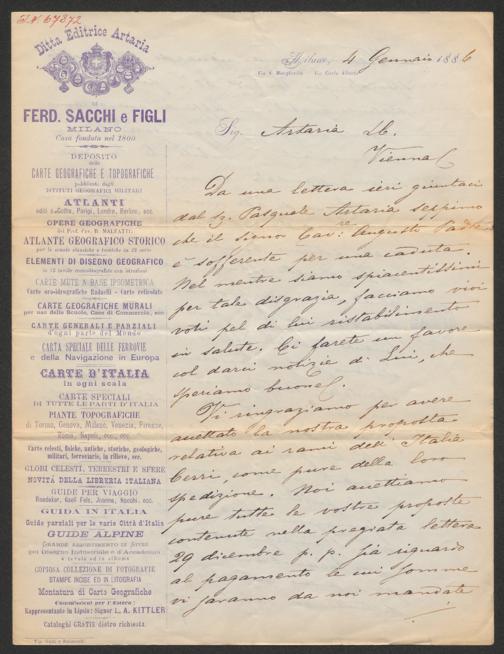 67872
Ditta Editrice Artaria
DI
FERD. SACCHI e FIGLI
MILANO
Casa fondata nel 1800
DEPOSITO
delle
CARTE GEOGRAFICHE E TOPOGRAFICHE
pubblicate dagli
ISTITUTI GEOGRAFICI MILITARI
ATLANTI
editi a Gotha, Parigi, Londra, Berlino, ecc.
OPERE GEOGRAFICHE
del Prof. Cav. B. MALFATTI
ATLANTE GEOGRAFICO STORICO
per le scuole classiche e tecniche in
ELEMENTI DI DISEGNO GEOGRAFICO
in 12 tavole
CARTE MUTE A BASE IPSOMETRICA
Carte oro-idrografiche - Carte rilievate
CARTE GEOGRAFICHE MURALI
per uso delle Scuole, Case di Commercio, ecc.
CARTE GENERALI E PARZIALI
d'ogni parte del Mondo
CARTA SPECIALE DELLE FERROVIE
e della Navigazione in Europa
CARTE D'ITALIA
in ogni scala
CARTE SPECIALI
DI TUTTE LE PARTI D'ITALIA
PIANTE TOPOGRAFICHE
di Torino, Genova, Milano, Venezia, Firenze,
Roma, Napoli, ecc. ecc.
Carte celesti, fisiche, antiche, storiche, geologiche,
militari, ferroviarie, in rilievo, ecc.
GLOBI CELESTI, TERRESTRI E SFERE
NOVITÀ DELLA LIBRERIA ITALIANA
GUIDE PER VIAGGIO
Baedeker, Gsell Fels, Joanne, ecc.
GUIDA IN ITALIA
Guide parziali per le varie Città d'Italia
GUIDE ALPINE
GRANDE ASSORTIMENTO DI
per Disegno Industriale e d'Accademia
COPIOSA COLLEZIONE DI FOTOGRAFIE
STAMPE INCISE ED IN LITOGRAFIA
Montatura di Carte Geografiche
Commissioni per l'Estero:
Rappresentante in Lipsia: Signor L. A. KITTLER
Cataloghi GRATIS dietro richiesta.
Milano, 4 Gennaio 1886
Via S. Margherita
Sig. Artaria & C.
Vienna
Da una lettera ieri giuntaci
dal Sg. Pasquale Artaria seppimo
che il Signor Cav.re Augusto Padre
è sofferente per una caduta.
Nel mentre siamo spiacentissimi
per tale disgrazia, facciamo vivi
voti pel di lui ristabilimento
in salute. Ci farete un favore
col darci notizie di Lui, che
speriamo buone.
Vi ringraziamo per avere
accettato la nostra proposta
relativa ai rami dell'Italia
Cerri, come pure della loro
spedizione. Noi accettiamo
pure tutte le vostre proposte
contenute nella pregiata lettera
29 dicembre p. p. Già riguardo
al pagamento le cui somme
vi saranno da noi mandate